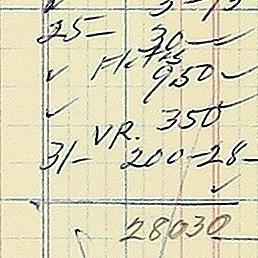 25- 30-
950-
350
VR.
31- 200-28-
28030